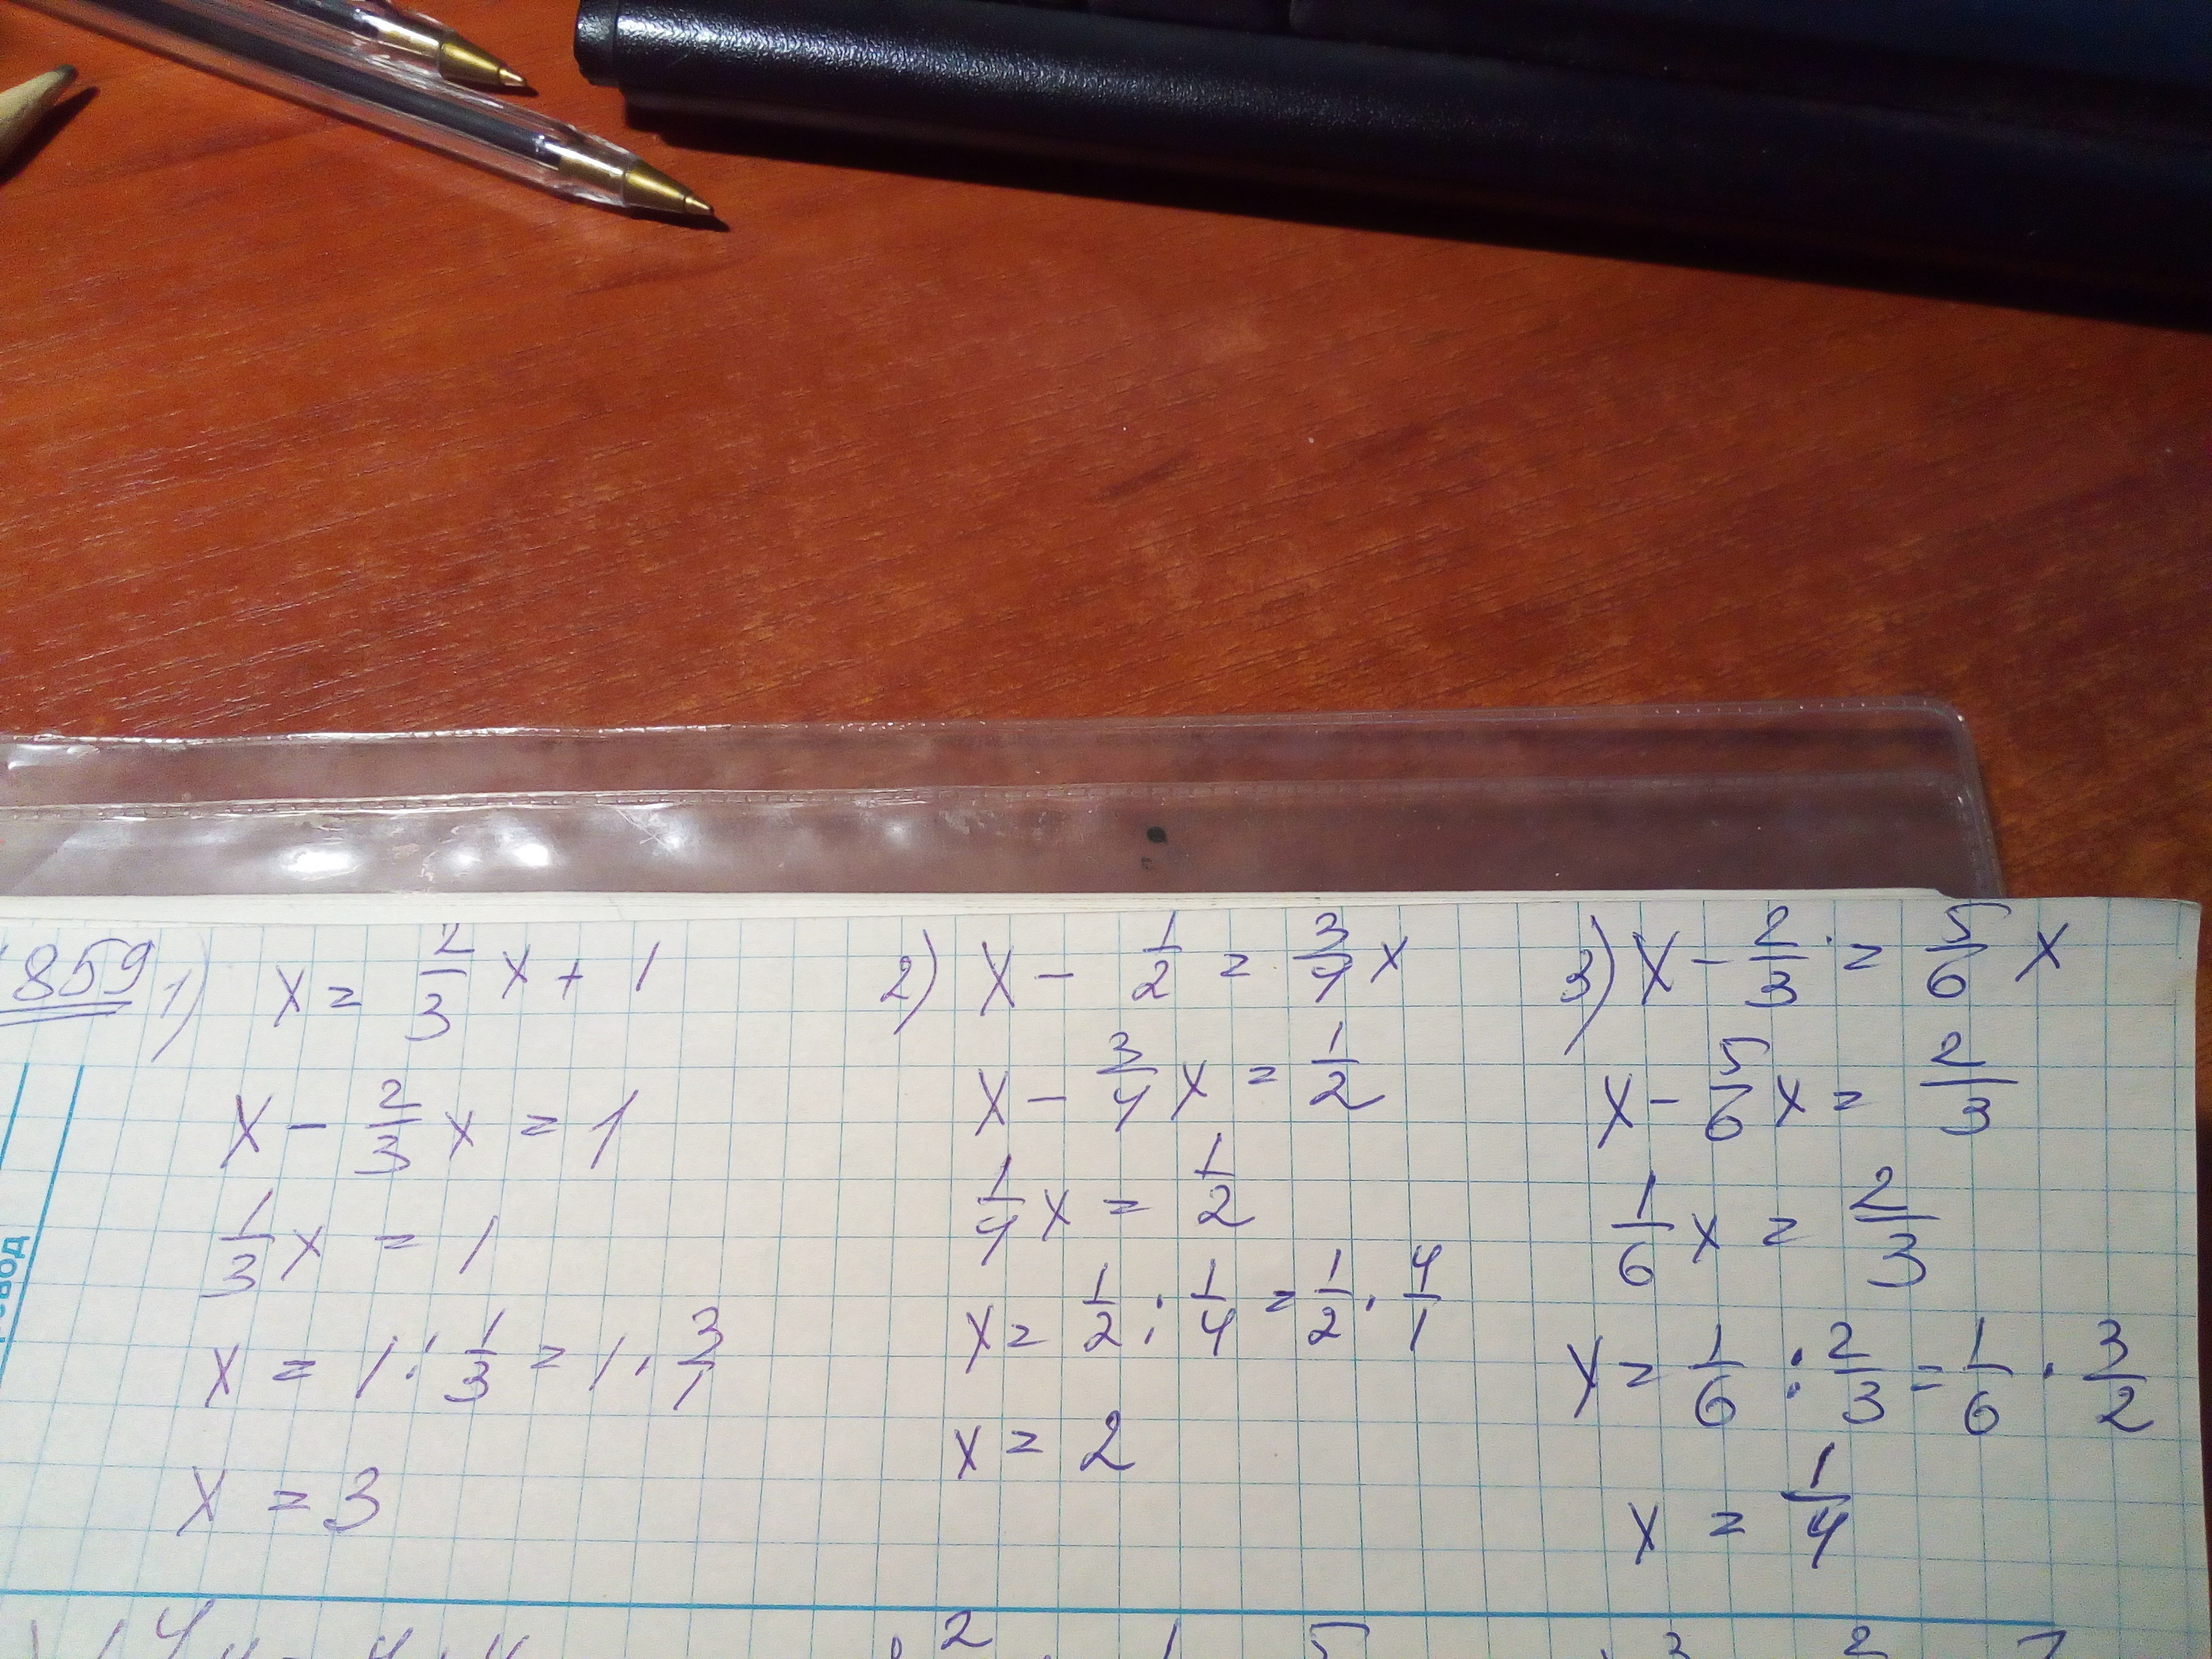 859 1) x = 2/3 x + 1
x - 2/3 x = 1
1/3 x = 1
x = 1 : 1/3 = 1 · 3/1
x = 3
2) x - 1/2 = 3/4 x
x - 3/4 x = 1/2
1/4 x = 1/2
x = 1/2 : 1/4 = 1/2 · 4/1
x = 2
3) x - 2/3 = 5/6 x
x - 5/6 x = 2/3
1/6 x = 2/3
x = 1/6 : 2/3 = 1/6 · 3/2
x = 1/4